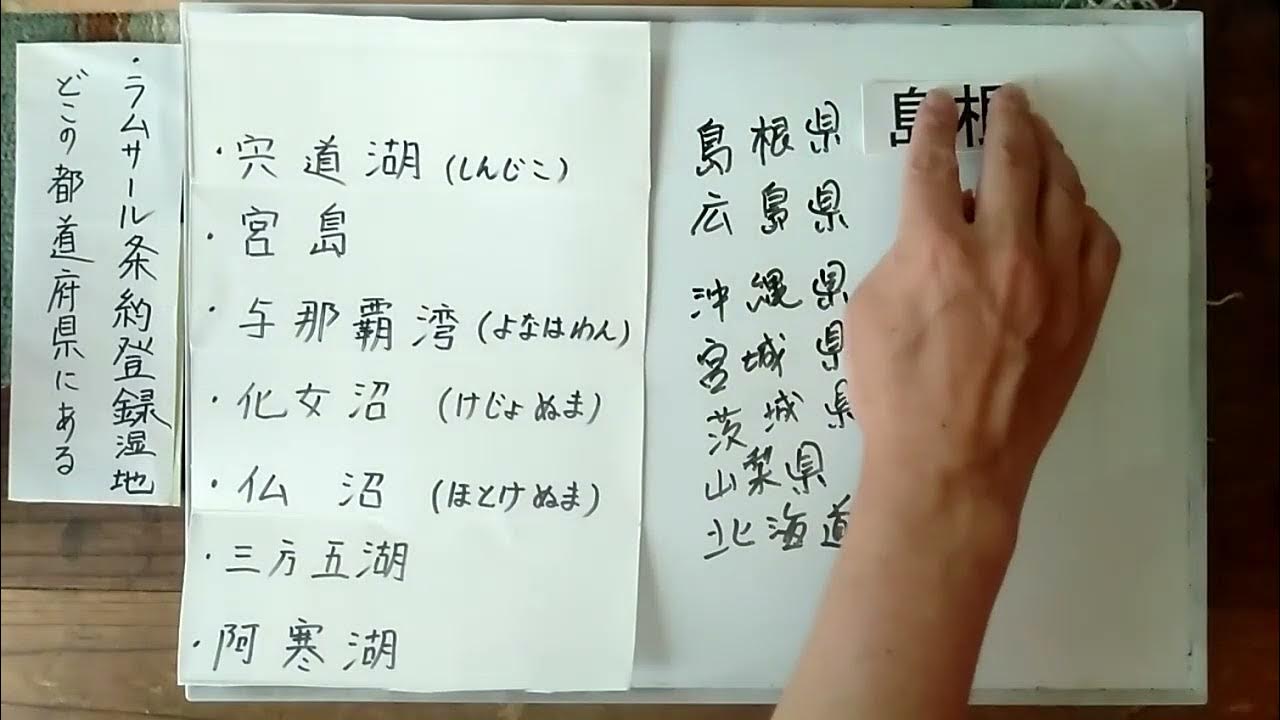 ・ラムサール条約登録湿地
どこの都道府県にある
・宍道湖(しんじこ)
・宮島
・与那覇湾(よなはわん)
・化女沼(けじょぬま)
・仏沼(ほとけぬま)
・三方五湖
・阿寒湖
島根県
広島県
沖縄県
宮城県
茨城県
山梨県
北海道
島根